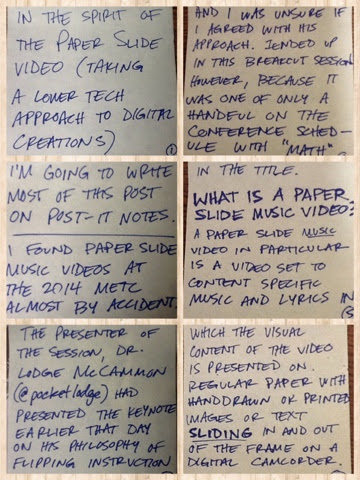 IN THE SPIRIT OF
THE PAPER SLIDE
VIDEO (TAKING
A LOWER TECH
APPROACH TO DIGITAL
CREATIONS)
①
I'M GOING TO WRITE
MOST OF THIS POST
ON POST-IT NOTES.
I FOUND PAPER SLIDE
MUSIC VIDEOS AT
THE 2014 METC
ALMOST BY ACCIDENT.
THE PRESENTER OF
THE SESSION, DR.
LODGE McCAMMON
(@pocketlodge) HAD
PRESENTED THE KEYNOTE
EARLIER THAT DAY
ON HIS PHILOSOPHY OF
FLIPPING INSTRUCTION
AND I WAS UNSURE IF
I AGREED WITH HIS
APPROACH. I ENDED UP
IN THIS BREAKOUT SESSION
HOWEVER, BECAUSE IT
WAS ONE OF ONLY A
HANDFUL ON THE
CONFERENCE SCHED-
ULE WITH "MATH"
IN THE TITLE.
WHAT IS A PAPER
SLIDE MUSIC VIDEO?
A PAPER SLIDE MUSIC
VIDEO IN PARTICULAR
IS A VIDEO SET TO
CONTENT SPECIFIC
MUSIC AND LYRICS IN
WHICH THE VISUAL
CONTENT OF THE VIDEO
IS PRESENTED ON
REGULAR PAPER WITH
HANDDRAWN OR PRINTED
IMAGES OR TEXT
SLIDING IN AND OUT
OF THE FRAME ON A
DIGITAL CAMCORDER.